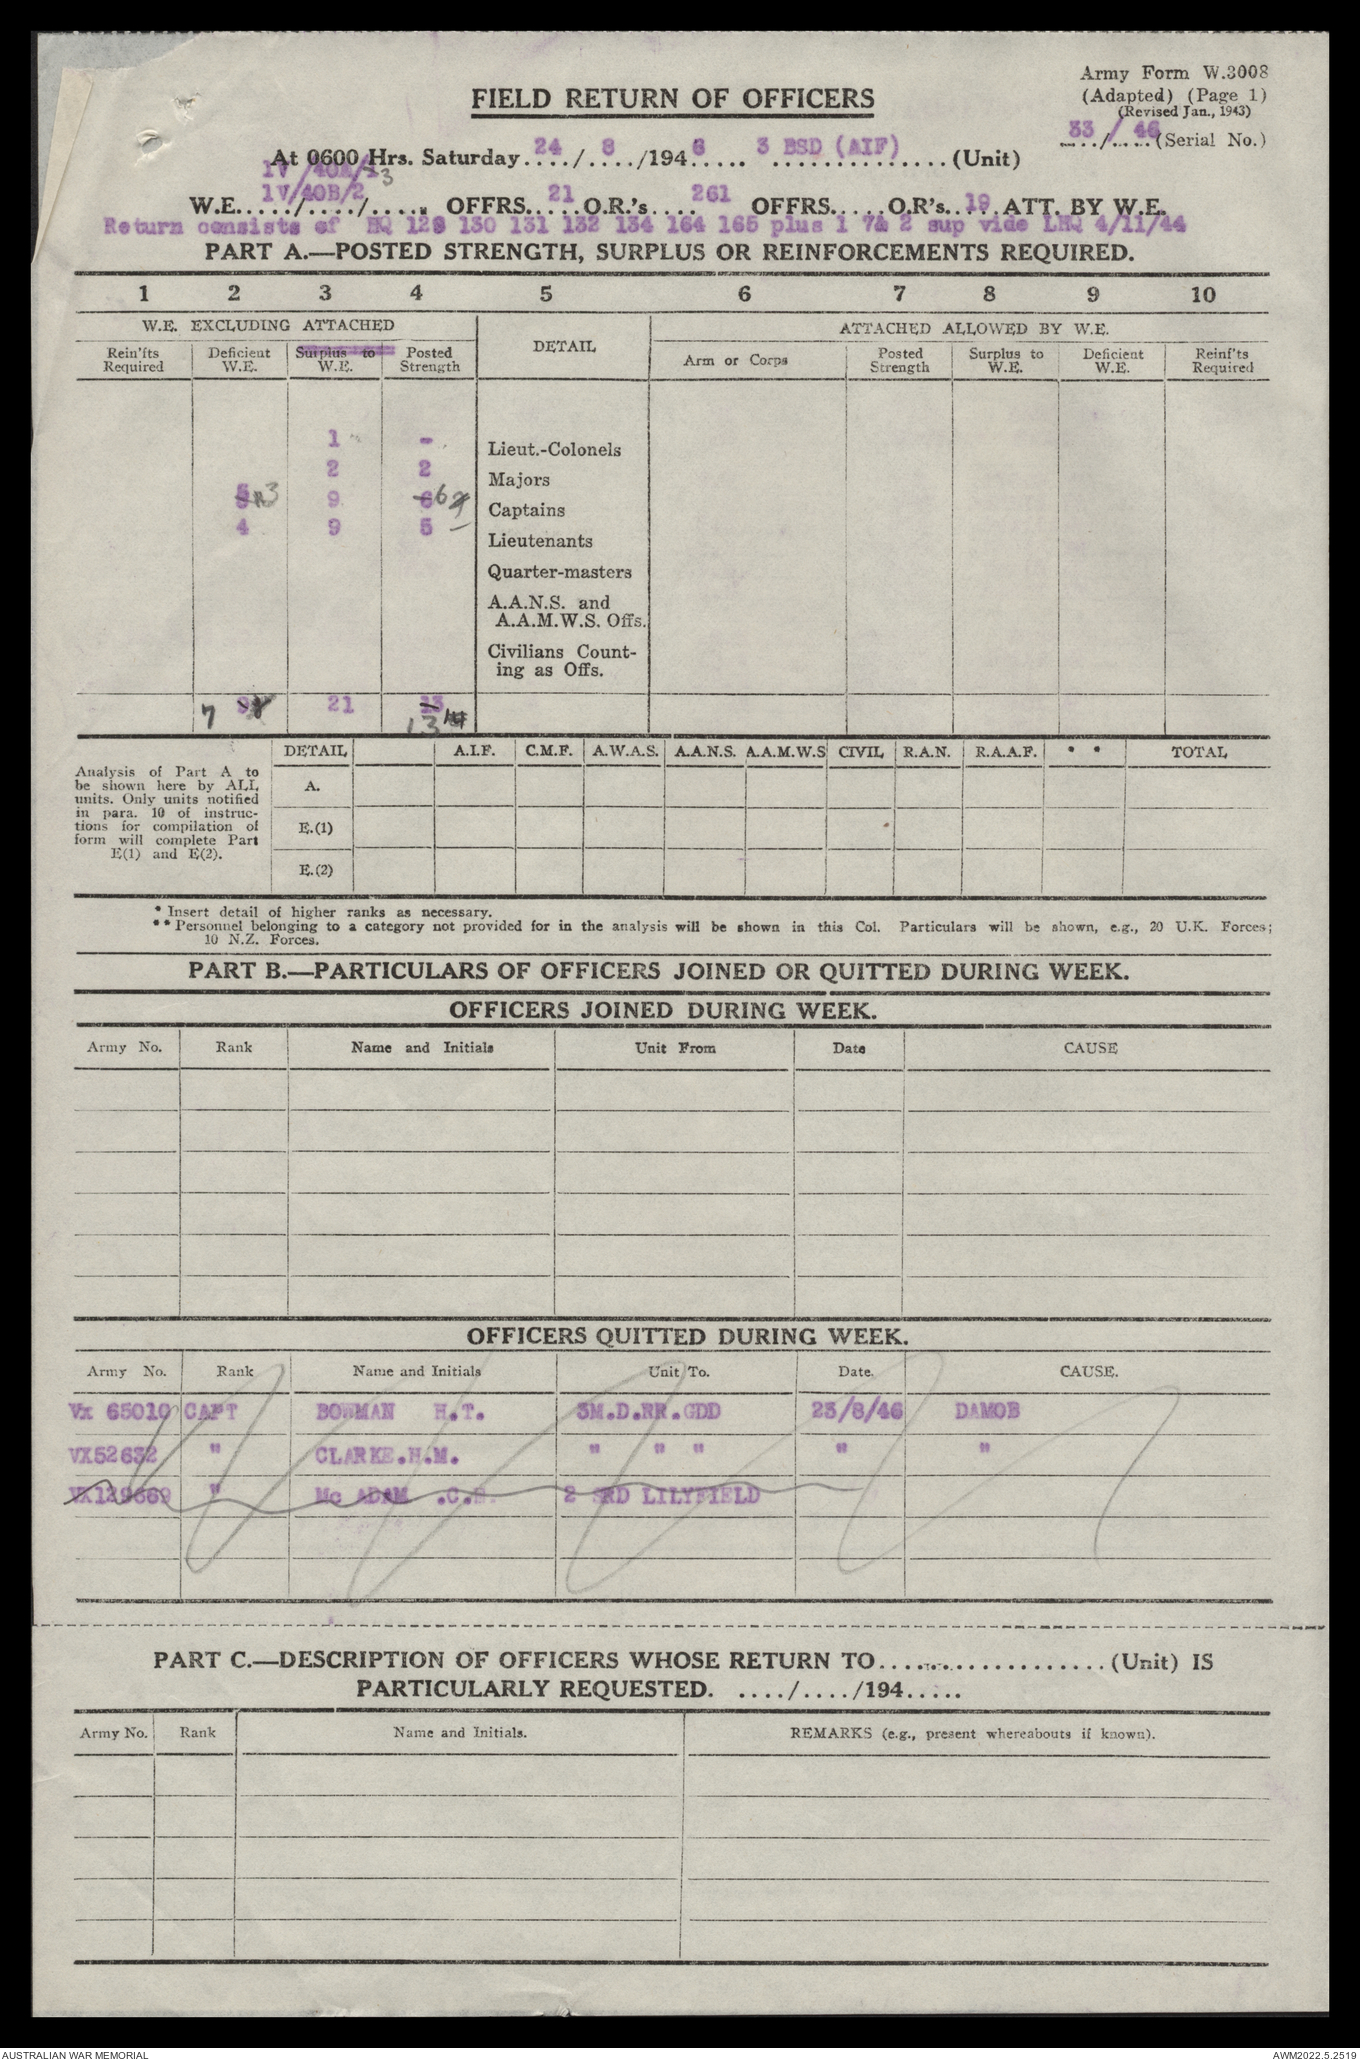 Army Form W.3008
(Adapted) (Page 1)
(Revised Jan., 1943)
33/46 (Serial No.)
FIELD RETURN OF OFFICERS
At 0600 Hrs. Saturday 24/8/1946 3 BSD (AIF) (Unit)
1V/40A/ 3
1V/40B/2
W.E...../..../..... OFFRS. 21 O.R.'s 261 OFFRS..... O.R's. 19 ATT. BY W.E.
Return consists of HQ 129 130 131 132 134 164 165 plus 1 7& 2 sup vide LHQ 4/11/44
PART A.—POSTED STRENGTH, SURPLUS OR REINFORCEMENTS REQUIRED.
1 2 3 4 5 6 7 8 9 10
W.E. EXCLUDING ATTACHED DETAIL ATTACHED ALLOWED BY W.E.
Rein'fts Required Deficient W.E. Surplus to W.E. Posted Strength Arm or Corps Posted Strength Surplus to W.E. Deficient W.E. Reinf'ts Required
1 - Lieut.-Colonels
2 2 Majors
3 9 6 Captains
4 9 5 Lieutenants
Quarter-masters
A.A.N.S. and
A.A.M.W.S. Offs.
Civilians Count-
ing as Offs.
9 21 13
7 13
DETAIL A.I.F. C.M.F. A.W.A.S. A.A.N.S. A.A.M.W.S CIVIL R.A.N. R.A.A.F. * * TOTAL
Analysis of Part A to
be shown here by ALL
units. Only units notified
in para. 10 of instruc-
tions for compilation of
form will complete Part
E(1) and E(2).
A.
E.(1)
E.(2)
* Insert detail of higher ranks as necessary.
** Personnel belonging to a category not provided for in the analysis will be shown in this Col. Particulars will be shown, e.g., 20 U.K. Forces;
10 N.Z. Forces.
PART B.—PARTICULARS OF OFFICERS JOINED OR QUITTED DURING WEEK.
OFFICERS JOINED DURING WEEK.
Army No. Rank Name and Initials Unit From Date CAUSE
OFFICERS QUITTED DURING WEEK.
Army No. Rank Name and Initials Unit To. Date. CAUSE.
Vx 65010 CAPT BOWMAN H.T. 3M.D.RR.GDD 23/8/46 DAMOB
VX52632 " CLARKE.H.M. " " " " "
VX129669 " Mc ADAM .C. 2 SRD LILYFIELD
PART C.—DESCRIPTION OF OFFICERS WHOSE RETURN TO.....................(Unit) IS
PARTICULARLY REQUESTED. ..../..../194.....
Army No. Rank Name and Initials. REMARKS (e.g., present whereabouts if known).
AUSTRALIAN WAR MEMORIAL
AWM2022.5.2519